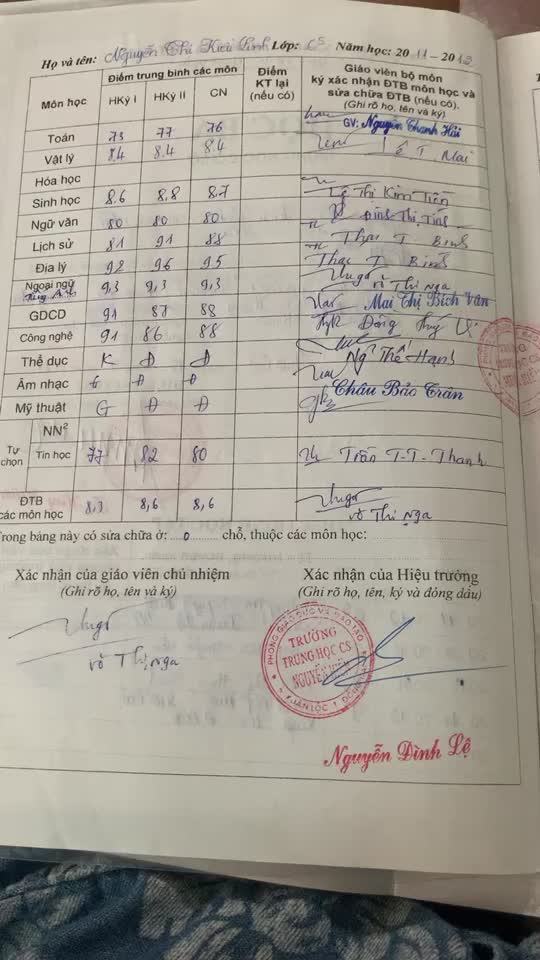 Họ và tên: Nguyễn Thị Kiều Linh Lớp: Năm học: 2011 - 2012
Môn học Điểm trung bình các môn Điểm KT lại (nếu có) Giáo viên bộ môn ký xác nhận ĐTB môn học và sửa chữa ĐTB (nếu có). (Ghi rõ họ, tên và ký)
HKỳ I HKỳ II CN
Toán 73 77 76 GV: Nguyễn Thanh Hải
Vật lý 8.4 8.4 8.4 Lê T Mai
Hóa học
Sinh học 8.6 8,8 8.7 Lê Thị Kim Tiến
Ngữ văn 80 80 80 Đinh Thị Tính
Lịch sử 81 91 88 Thạc T Bình
Địa lý 92 96 95 Thạc T Bình
Ngoại ngữ 9,3 9,3 9,3 Võ Thị Nga
GDCD 91 87 88 Mai Thị Bích Vân
Công nghệ 91 86 88
Thể dục K Đ Đ Ng Thế Hạnh
Âm nhạc G Đ Đ Châu Bảo Trân
Mỹ thuật G Đ Đ
Tự chọn NN2
Tin học 77 8.2 80 Trần T-T-Thanh
ĐTB các môn học 8,3 8,6 8,6 Võ Thị Nga
Trong bảng này có sửa chữa ở: 0 chỗ, thuộc các môn học:
Xác nhận của giáo viên chủ nhiệm Xác nhận của Hiệu trưởng
(Ghi rõ họ, tên và ký) (Ghi rõ họ, tên, ký và đóng dấu)
Võ Thị Nga
PHÒNG GIÁO DỤC VÀ ĐÀO TẠO
TRƯỜNG
TRUNG HỌC CS
NGUYỄN HIỀN
Nguyễn Đình Lệ